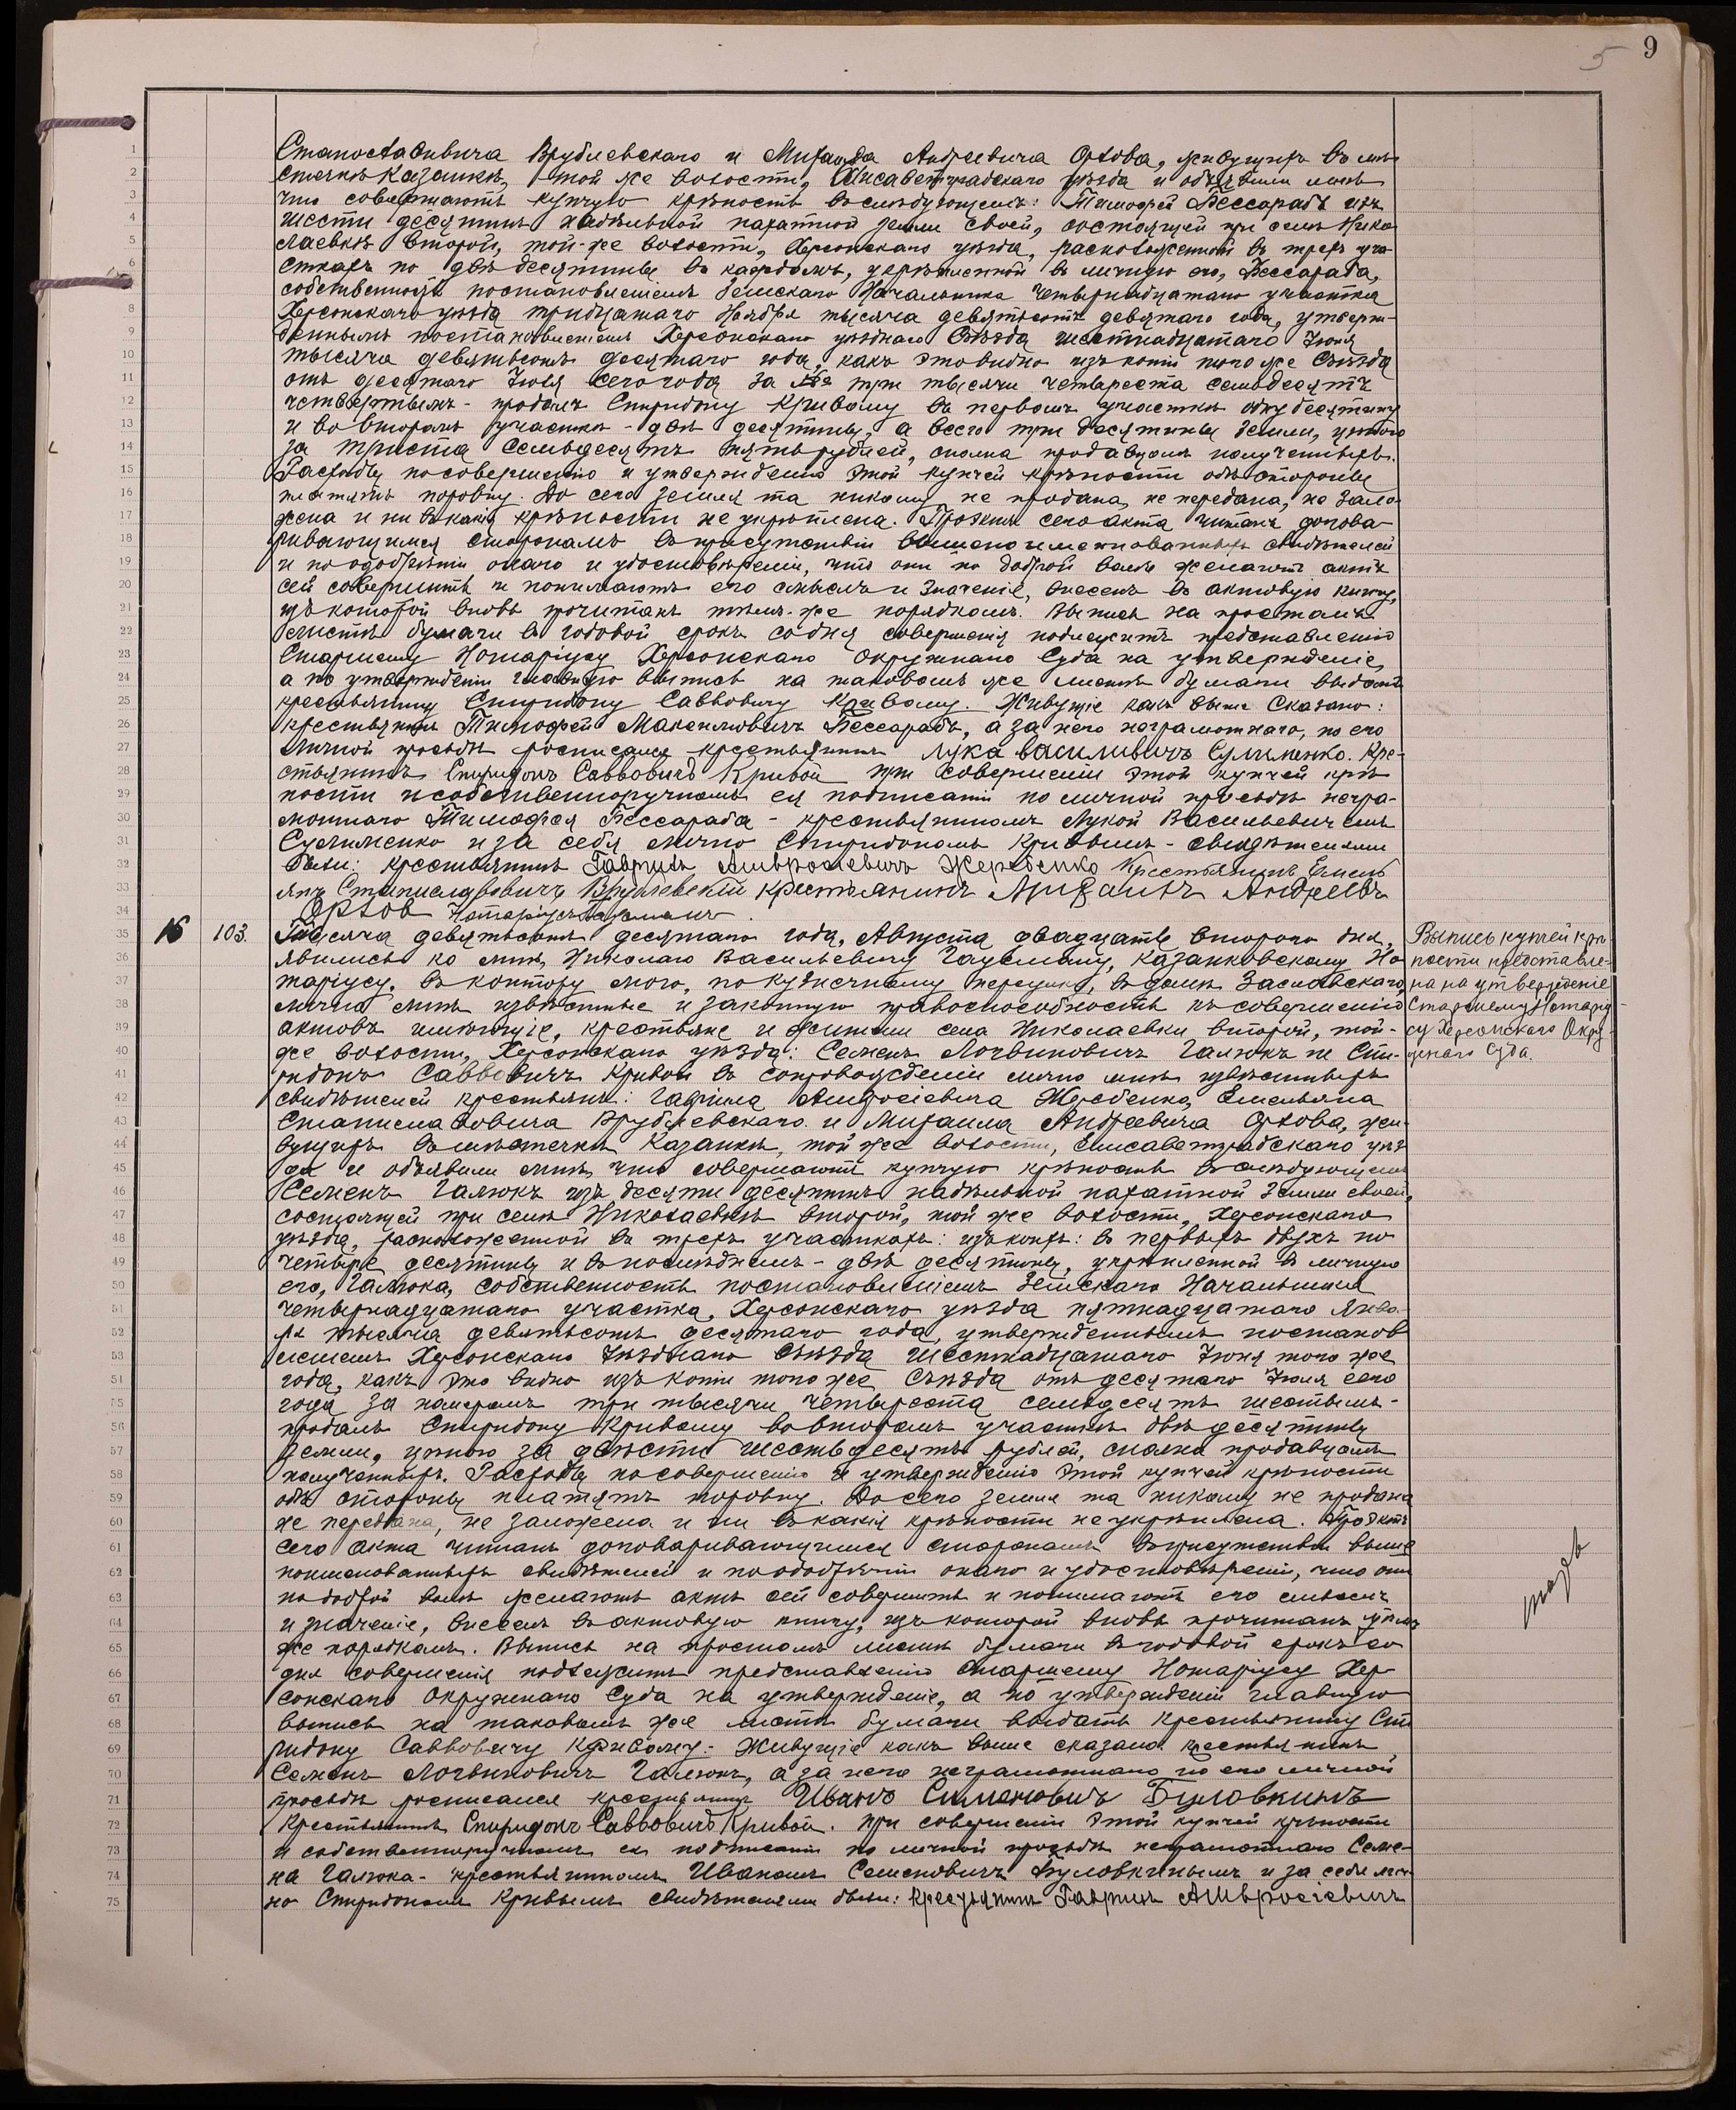 5 9
Станославича Врублевскаго и Михаила Андреевича Орлова, живущихъ въ мѣ-
стечкѣ Казанкѣ, той же волости, Елисаветградскаго уѣзда и объявили мнѣ
что совершаютъ купчую крѣпость въ слѣдующемъ: Тимофей Бессарабъ изъ
шести десятинъ надѣльной пахатной земли своей, состоящей при селѣ Нико-
лаевкѣ второй, той-же волости, Херсонскаго уѣзда, расположенной въ трехъ уча-
сткахъ по двѣ десятины въ каждомъ, укрѣпленной въ личную его, Бессараба,
собственность постановленіемъ Земскаго Начальника Четырнадцатаго участка
Херсонскаго уѣзда тридцатаго Ноября тысяча девятьсотъ девятаго года, утверж-
деннымъ постановленіемъ Херсонскаго уѣзднаго Съѣзда шестнадцатаго Іюня
тысяча девятьсотъ десятаго года, какъ это видно изъ копіи того же Съѣзда
отъ десятаго Іюля сего года за № три тысячи четыреста семьдесятъ
четвертымъ - продалъ Спиридону Кривому въ первомъ участкѣ одну десятину
и во второмъ участкѣ - двѣ десятины, а всего три десятины земли, цѣною
за триста семьдесятъ пять рублей, сполна продавцомъ полученныхъ.
Расходы по совершенію и утвержденію этой купчей крѣпости обѣ стороны
платятъ поровну. До сего земля та никому не продана, не передана, не зало-
жена и ни въ какія крѣпости не укрѣплена. Проэктъ сего акта читанъ догова-
ривающимся сторонамъ въ присутствіи вышепоименованныхъ свидѣтелей
и по одобреніи онаго и удостовѣреніи, что они по доброй волѣ желаютъ актъ
сей совершить и понимаютъ его смыслъ и значеніе, внесенъ въ актовую книгу,
изъ которой вновь прочитанъ тѣмъ-же порядкомъ. Выпись на простомъ
листѣ бумаги въ годовой срокъ со дня совершенія подлежитъ представленію
Старшему Нотаріусу Херсонскаго Окружнаго Суда на утвержденіе,
а по утвержденіи главную выпись на таковомъ же листѣ бумаги выдать
крестьянину Спиридону Саввовичу Кривому. Живущіе какъ выше сказано:
крестьянинъ Тимофей Максимовичъ Бессарабъ, а за него неграмотнаго, по его
личной просьбѣ росписался крестьянинъ Лука Василивичъ Сулименко. Кре-
стьянинъ Спиридонъ Саввовичъ Кривой при совершеніи этой купчей крѣ-
пости и собственноручномъ ея подписаніи по личной просьбѣ негра-
мотнаго Тимофея Бессараба - крестьяниномъ Лукой Васильевичемъ
Сулименко и за себя лично Спиридономъ Кривымъ - свидѣтелями
были: крестьянинъ Гаврилъ Амвросіевичъ Жеребенко Крестьянинъ Емель-
янъ Станиславовичъ Врублевскій крестьянинъ Михаилъ Андреевъ
Орлов Нотаріусъ Гаусманъ.
16 103. Тысяча девятьсотъ десятаго года, Августа двадцать второго дня,
явились ко мнѣ, Николаю Васильевичу Гаусману, Казанковскому Но-
таріусу, въ контору мою, по Кузнечному переулку, въ домѣ Заславскаго,
лично мнѣ извѣстные и законную правоспособность къ совершенію
актовъ имѣющіе, крестьяне и жители села Николаевки второй, той-
же волости, Херсонскаго уѣзда: Семенъ Логвиновичъ Галюкъ и Спи-
ридонъ Саввовичъ Кривой въ сопровожденіи лично мнѣ извѣстныхъ
свидѣтелей крестьянъ: Гаврила Амвросіевича Жеребенко, Емельяна
Станиславовича Врублевскаго и Михаила Андреевича Орлова, жи-
вущихъ въ мѣстечкѣ Казанкѣ, той же волости, Елисаветградскаго уѣз-
да и объявили мнѣ, что совершаютъ купчую крѣпость въ слѣдующемъ
Семенъ Галюкъ изъ десяти десятинъ надѣльной пахатной земли своей,
состоящей при селѣ Николаевкѣ второй, той же волости, Херсонскаго
уѣзда, расположенной въ трехъ участкахъ: изъ коихъ: въ первыхъ двухъ по
четыре десятины и въ послѣднемъ - двѣ десятины, укрѣпленной въ личную
его, Галюка, собственность постановленіемъ Земскаго Начальника
четырнадцатаго участка, Херсонскаго уѣзда пятнадцатаго Янва-
ря тысяча девятьсотъ десятаго года, утвержденнымъ постанов-
леніемъ Херсонскаго Уѣзднаго Съѣзда Шестнадцатаго Іюня того же
года, какъ это видно изъ копіи того же Съѣзда отъ десятаго Іюля сего
года за номеромъ три тысячи четыреста семьдесятъ шестымъ -
продалъ Спиридону Кривому во второмъ участкѣ двѣ десятины
земли, цѣною за двѣсти шестьдесятъ рублей, сполна продавцомъ
полученныхъ. Расходы по совершенію и утвержденію этой купчей крѣпости
обѣ стороны платятъ поровну. До сего земля та никому не продана
не передана, не заложена и ни въ какія крѣпости не укрѣплена. Проэктъ
сего акта читанъ договаривающимся сторонамъ въ присутствіи выше
поименованныхъ свидѣтелей и по одобреніи онаго и удостовѣреніи, что они
по доброй волѣ желаютъ актъ сей совершить и понимаютъ его смыслъ
и значеніе, внесенъ въ актовую книгу, изъ которой вновь прочитанъ тѣмъ
же порядкомъ. Выпись на простомъ листѣ бумаги въ годовой срокъ со
дня совершенія подлежитъ представленію Старшему Нотаріусу Хер-
сонскаго Окружнаго Суда на утвержденіе, а по утвержденіи главную
выпись на таковомъ же листѣ бумаги выдать крестьянину Спи
ридону Саввовичу Кривому. Живущіе какъ выше сказано крестьянинъ
Семенъ Логвиновичъ Галюкъ, а за него неграмотнаго по его личной
просьбѣ росписался крестьянинъ Иванъ Сименовичъ Буловкинъ
Крестьянинъ Спиридонъ Саввовичъ Кривой. При совершеніи этой купчей крѣпости
и собственноручномъ ея подписаніи по личной просьбѣ неграмотнаго Семе-
на Галюка - крестьяниномъ Иваномъ Семеновичъ Буловкинымъ и за себя лич-
но Спиридономъ Кривымъ свидѣтелями были: Крестьянинъ Гаврилъ Амвросіевичъ
Выпись купчей крѣ-
пости представле-
на на утвержденіе
Старшему Нотаріу-
су Херсонскаго Окру-
жнаго Суда.